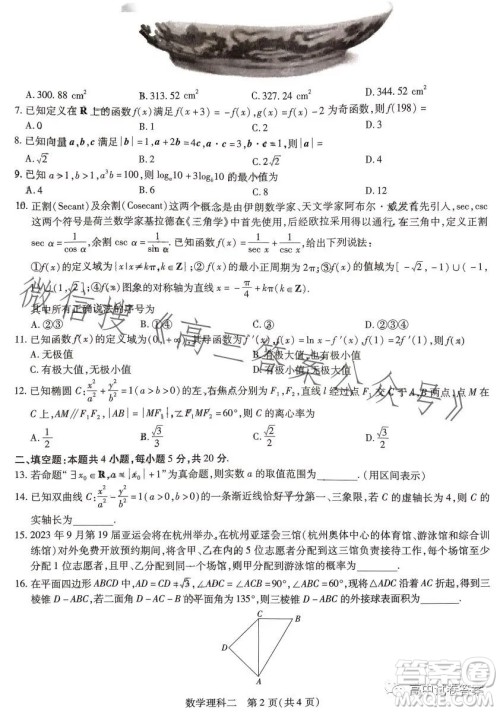 A. 300.88 cm² B. 313.52 cm² C. 327.24 cm² D. 344.52 cm²
7. 已知定义在 R 上的函数 f(x) 满足 f(x+3)=-f(x), g(x)=f(x)-2 为奇函数, 则 f(198)=
A. 0 B. 1 C. 2 D. 3
8. 已知向量 a, b, c 满足 |b|=1, a+2b=4c, a·c=3, b·c=1, 则 |a|=
A. √2 B. 2 C. 2√2 D. 4
9. 已知 a>1, b>1, a³b=100, 则 logₐ10+3log_b10 的最小值为
A. 4 B. 6 C. 8 D. 12
10. 正割(Secant)及余割(Cosecant)这两个概念是由伊朗数学家、天文学家阿布尔·威发首先引入, sec, csc
这两个符号是荷兰数学家基拉德在《三角学》中首先使用, 后经欧拉采用得以通行. 在三角中, 定义正割
sec α=1/cos α, 余割 csc α=1/sin α. 已知函数 f(x)=1/sec x+1/csc x, 给出如下说法:
①f(x) 的定义域为 {x|x≠kπ, k∈Z}; ②f(x) 的最小正周期为 2π; ③f(x) 的值域为 [-√2, -1)∪(-1,
√2]; ④f(x) 图象的对称轴为直线 x=-π/4+kπ(k∈Z).
其中所有正确说法的序号为
A. ②③ B. ①④ C. ③ D. ②
11. 已知函数 f(x) 的定义域为 (0,+∞), 其导函数为 f′(x), f(x)=ln x-f′(x), f(1)=0, 则 f(x)
A. 无极值 B. 有极大值, 也有极小值
C. 有极大值, 无极小值 D. 有极小值, 无极大值
12. 已知椭圆 C: x²/a²+y²/b²=1(a>b>0) 的左、右焦点分别为 F₁, F₂, 直线 l 经过点 F₁ 交 C 于 A, B 两点, 点 M 在
C 上, AM∥F₁F₂, |AB|=|MF₁|, ∠F₁MF₂=60°, 则 C 的离心率为
A. 1/2 B. √3/3 C. √2/2 D. √3/2
二、填空题: 本题共 4 小题, 每小题 5 分, 共 20 分.
13. 若命题“∃x₀∈R, a≥|x₀|+1”为真命题, 则实数 a 的取值范围为________. (用区间表示)
14. 已知双曲线 C: x²/a²-y²/b²=1(a>0, b>0) 的一条渐近线恰好平分第一、三象限, 若 C 的虚轴长为 4, 则 C 的
实轴长为________.
15. 2023 年 9 月第 19 届亚运会在杭州举办. 在杭州亚运会三馆(杭州奥体中心的体育馆、游泳馆和综合训
练馆)对外免费开放预约期间, 将含甲、乙在内的 5 位志愿者分配到这三馆负责接待工作, 每个场馆至少
分配 1 位志愿者, 且每位志愿者只分配到一个场馆, 则甲分配到游泳馆的概率为________.
16. 在平面四边形 ABCD 中, AD=CD=√3, ∠ADC=∠ACB=90°, ∠ABC=60°, 现将△ADC 沿着 AC 折起, 得到三
棱锥 D-ABC, 若二面角 D-AC-B 的平面角为 135°, 则三棱锥 D-ABC 的外接球表面积为________.
C B
D
A
数学理科二 第 2 页(共 4 页)
微信搜《高三答案公众号》
高中试卷答案